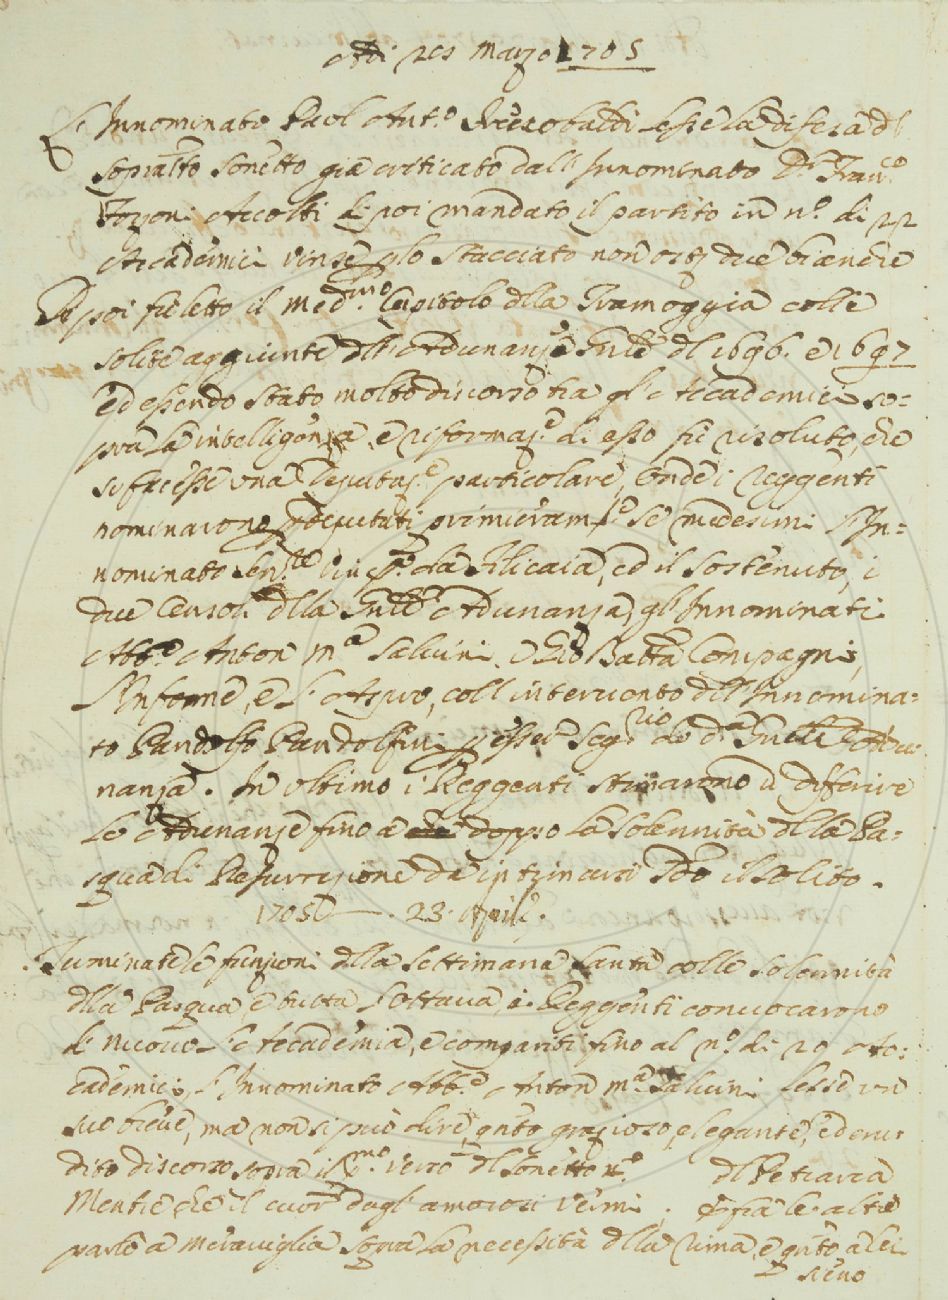 Adi 26 Marzo 1705
L'Innominato Paol Ant.o lesse la difesa d'l
soprad.to sonetto già criticato dall'Innominato D.r Fran.co
Forzoni Accolti di poi mandato il partito in n.o di 22
Accademici vinse p lo stacciato non ost due bianche
Di poi fu letto il med.mo Capitolo dlla Tramoggia colle
solite aggiunte dll'Adunanze dl 1696. e 1697
ed essendo stato molto discorso tra gl'Accademici so=
pra la intelligenza, e riformaz.e di esso fu risoluto, che
si facesse una Deputaz.e particolare, onde i Reggenti
nominarono p deputati primieram.te se medesimi l'In=
nominato Sen.re Vinc.o da Filicaia, ed il Sostenuto, i
due Censori dlla Adunanza, gl'Innominati
Abb.e Anton M.a Salvini, e Gio Batta Compagni,
l'Infarine, e l'Aspro, coll'intervento dll'Innomina=
to Pandolfo Pandolfini p esser Seg.rio di d.a Adu
nanza. In ultimo i Reggenti stimarono il differire
le Adunanze fino a doppo la solennità dlla Pa=
squa di Resurrezione da intimarsi sdo il solito.
1705 — . 23. Aprile.
Terminate le funzioni dlla Settimana Santa colle solennità
dlla Pasqua e tutta l'ottava, i Reggenti convocarono
di nuovo l'Accademia, e compariti fino al n.o di 29 Ac=
cademici, l'Innominato Abb.e Anton M.a Salvini lesse un
suo breve, ma non si può dire, qnto grazioso, elegante, ed eru
dito discorso sopra il p.mo verso dl sonetto dl Petrarca
Mentre che il cuor dagl'amorosi vermi; e fra le altre
parlò a meraviglia sopra la necessità dlla rima, e qnto a lei
sieno